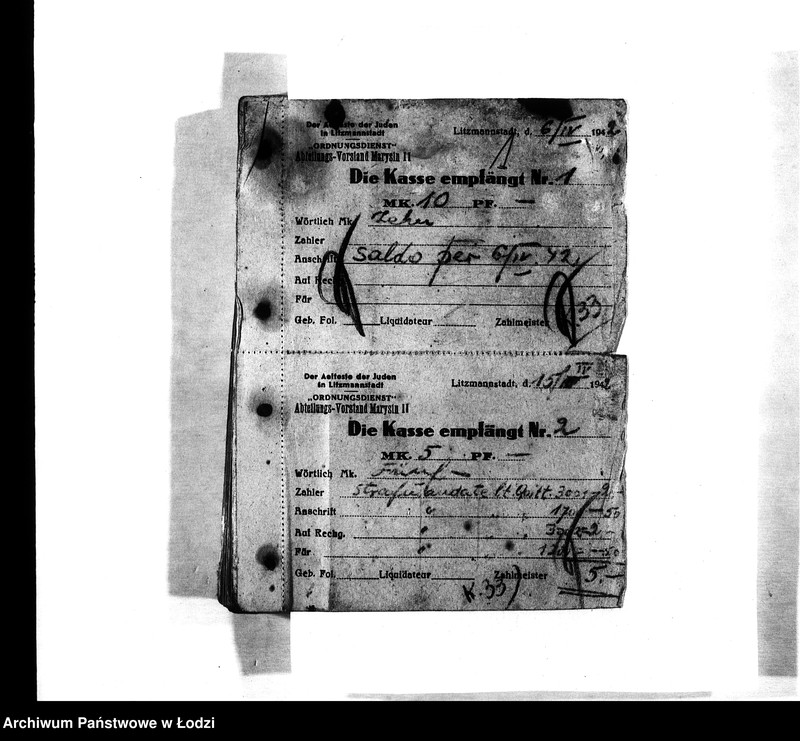 Der Aelteste der Juden
in Litzmannstadt
Litzmannstadt, d. 6/IV 1942
„ORDNUNGSDIENST“
Abteilungs-Vorstand Marysin II
Die Kasse empfängt Nr. 1
MK. 10 PF. —
Wörtlich Mk. Zehn
Zahler
Anschrift saldo per 6/IV. 42.
Auf Rechg.
Für
Geb. Fol. Liquidateur Zahlmeister
K.33
Der Aelteste der Juden
in Litzmannstadt
Litzmannstadt, d. 15/IV 1942
„ORDNUNGSDIENST“
Abteilungs-Vorstand Marysin II
Die Kasse empfängt Nr. 2
MK. 5 PF. —
Wörtlich Mk. Fünf —
Zahler Strafmandate lt. Quitt.
Anschrift " — 50
Auf Rechg. " 2 —
Für " — 50
Geb. Fol. Liquidateur Zahlmeister 5.—
K.33)
Archiwum Państwowe w Łodzi